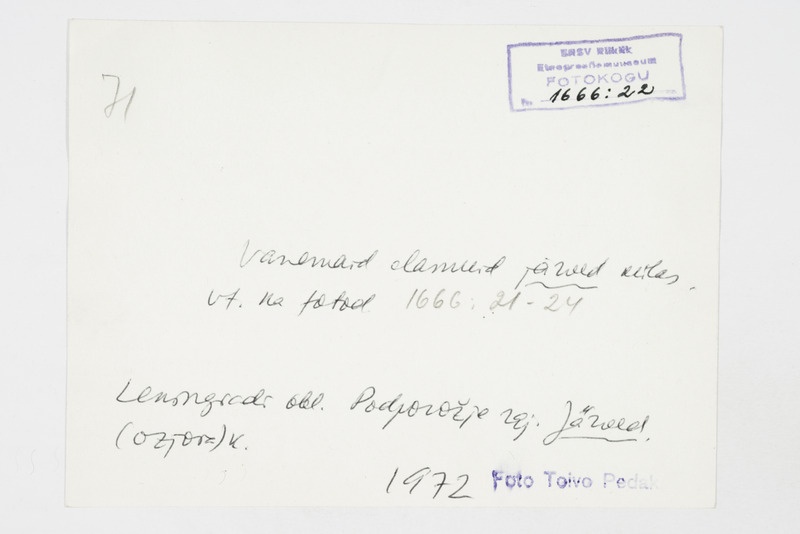 71
ENSV Riiklik
Etnograafiamuuseum
FOTOKOGU
Nr. 1666:22
Vanemaid elamuid järved külas.
Vt. ka fotod 1666: 21-24
Leningradi obl. Podporožje raj. Järved.
(Ozjora) k.
1972 Foto Toivo Pedak